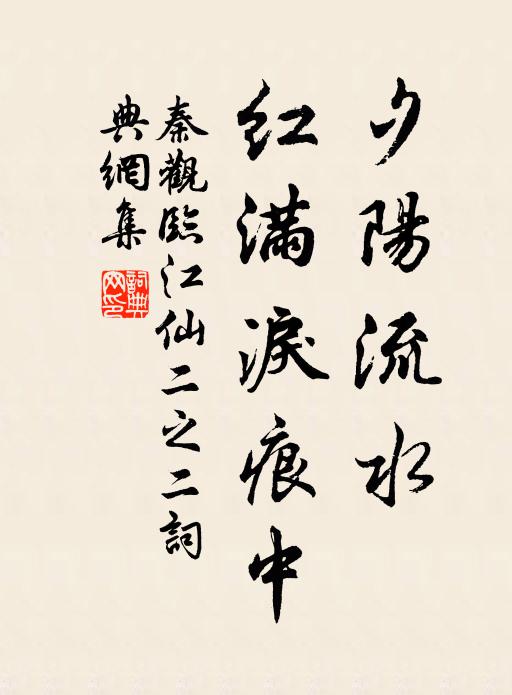 夕陽流水
紅滿淚痕中
秦觀臨江仙二之二詞
典網集
詞典網印